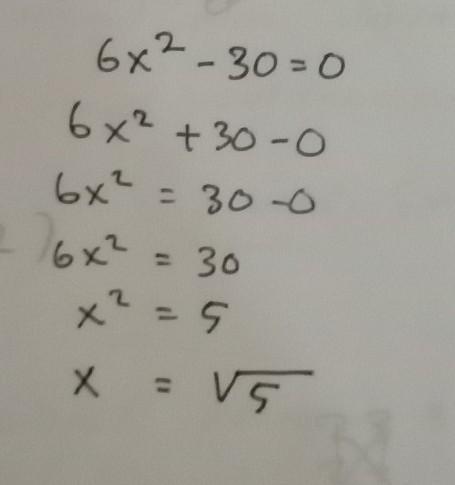 6x² - 30 = 0
6x² + 30 - 0
6x² = 30 - 0
6x² = 30
x² = 5
x = √5